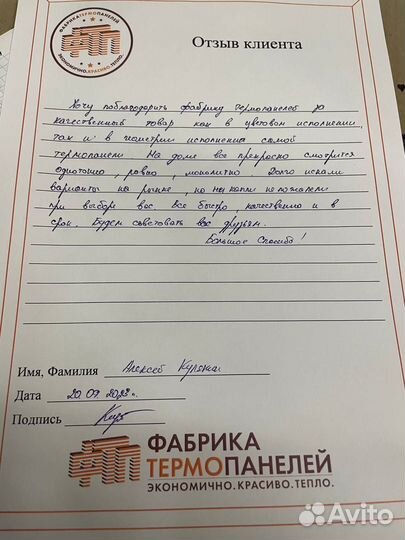 ФАБРИКА ТЕРМОПАНЕЛЕЙ
ФТП
ЭКОНОМИЧНО.КРАСИВО.ТЕПЛО.
Отзыв клиента
Хочу поблагодарить фабрику термопанелей за
качественный товар как в цветовом исполнении,
так и в геометрии исполнения самой
термопанели. На доме все прекрасно смотрится
однотонно, ровно, монолитно. Долго искали
варианты на рынке, но ни капли не пожалели
при выборе вас. Все быстро, качественно и в
срок. Будем советовать вас друзьям.
Большое спасибо!
Имя, Фамилия Алексей
Дата 20 07
Подпись
ФТП ФАБРИКА
ТЕРМОПАНЕЛЕЙ
ЭКОНОМИЧНО.КРАСИВО.ТЕПЛО.
Avito